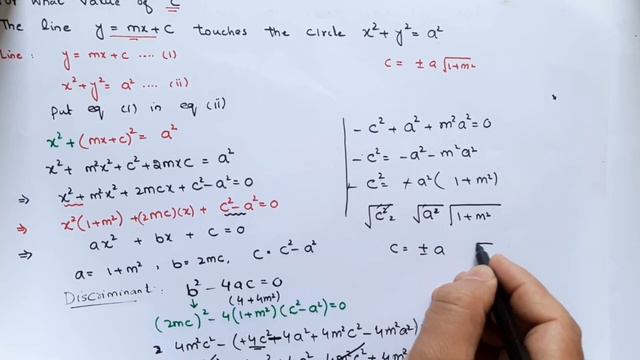 For what value of c
The line y = mx + c touches the circle x² + y² = a²
Line: y = mx + c .... (i)
c = ± a √1+m²
x² + y² = a² .... (ii)
Put eq (i) in eq (ii)
x² + (mx+c)² = a²
x² + m²x² + c² + 2mxc = a²
⇒ x² + m²x² + 2mcx + c² - a² = 0
⇒ x²(1+m²) + (2mc)(x) + c² - a² = 0
⇒ ax² + bx + c = 0
a = 1+m², b = 2mc, c = c² - a²
Discriminant: b² - 4ac = 0
(4+4m²)
(2mc)² - 4(1+m²)(c² - a²) = 0
4m²c² - (+4c² - 4a² + 4m²c² - 4m²a²)
- c² + a² + m²a² = 0
- c² = -a² - m²a²
- c² = + a² (1+m²)
√c² √a² √1+m²
c = ± a